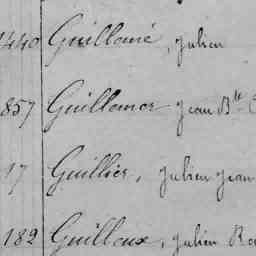 1440 Guillomé, Julien
857 Guillomor Jean Bte
17 Guillier, Julien Jean
182 Guilloux, Julien